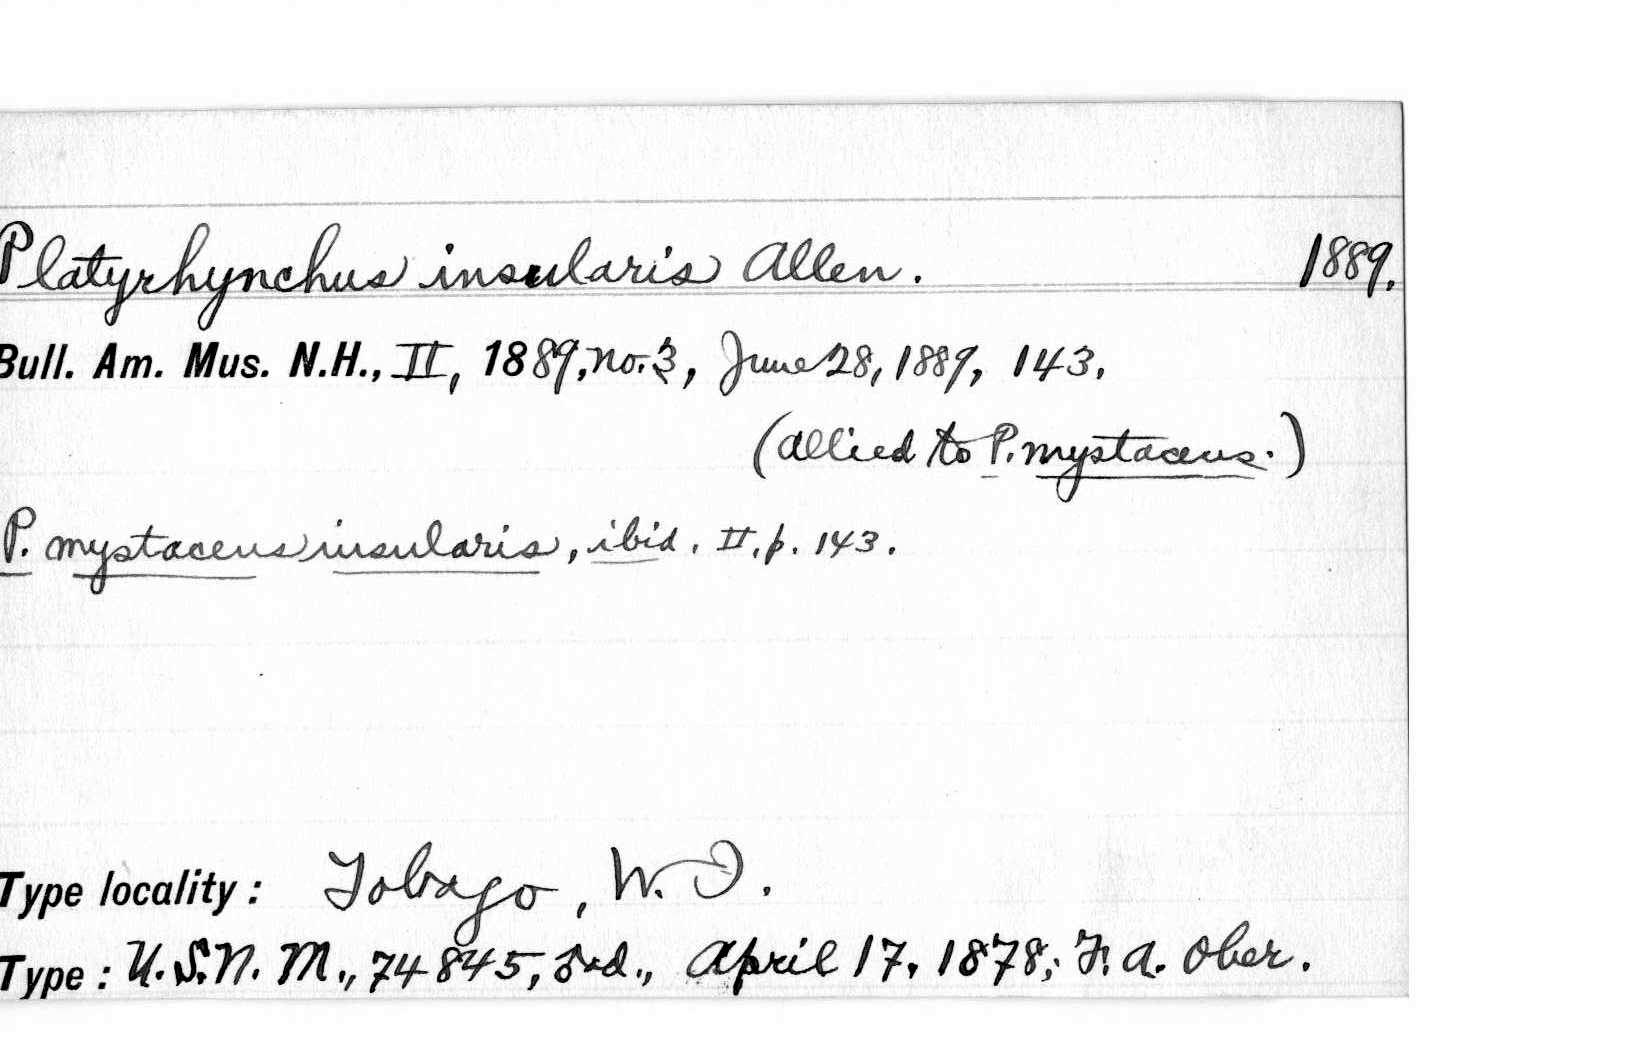 Platyrhynchus insularis Allen. 1889.
Bull. Am. Mus. N.H., II, 1889, no. 3, June 28, 1889, 143.
(Allied to P. mystaceus.)
P. mystaceus insularis, ibid. II, p. 143.
Type locality: Tobago, W. I.
Type: U.S.N.M., 74845, ad., April 17, 1878; F. A. Ober.